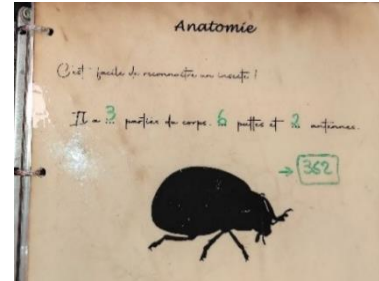 Anatomie
C'est facile de reconnaître un insecte !
Il a 3 parties de corps. 6 pattes et 2 antennes.
→ 362